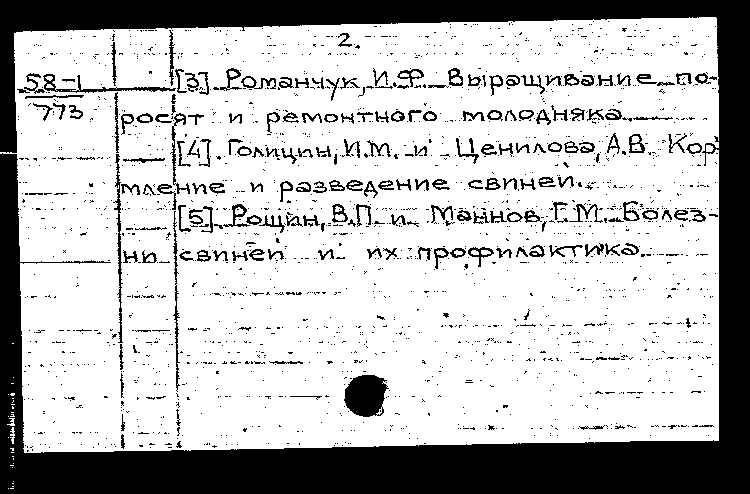 2.
58-1
773
[3] Романчук, И.Ф. Выращивание по-
росят и ремонтного молодняка.
[4]. Голицын, И.М. и Ценилова, А.В. Кор-
мление и разведение свиней.
[5]. Рощин, В.П. и Маннов, Г.М. Болез-
ни свиней и их профилактика.